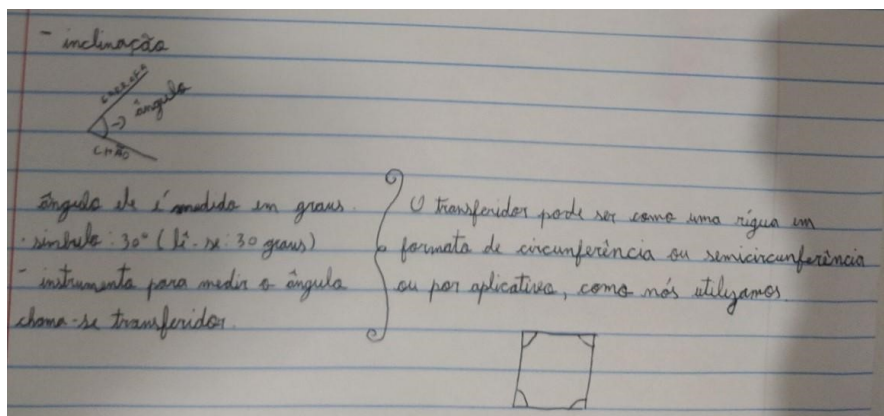 - inclinação
garrafa
-> ângulo
chão
ângulo ele é medido em graus.
- símbulo: 30° (lê-se: 30 graus)
- instrumento para medir o ângulo
chama-se transferidor.
O transferidor pode ser como uma rígua em
formato de circunferência ou semicircunferência
ou por aplicativo, como nós utilizamos.